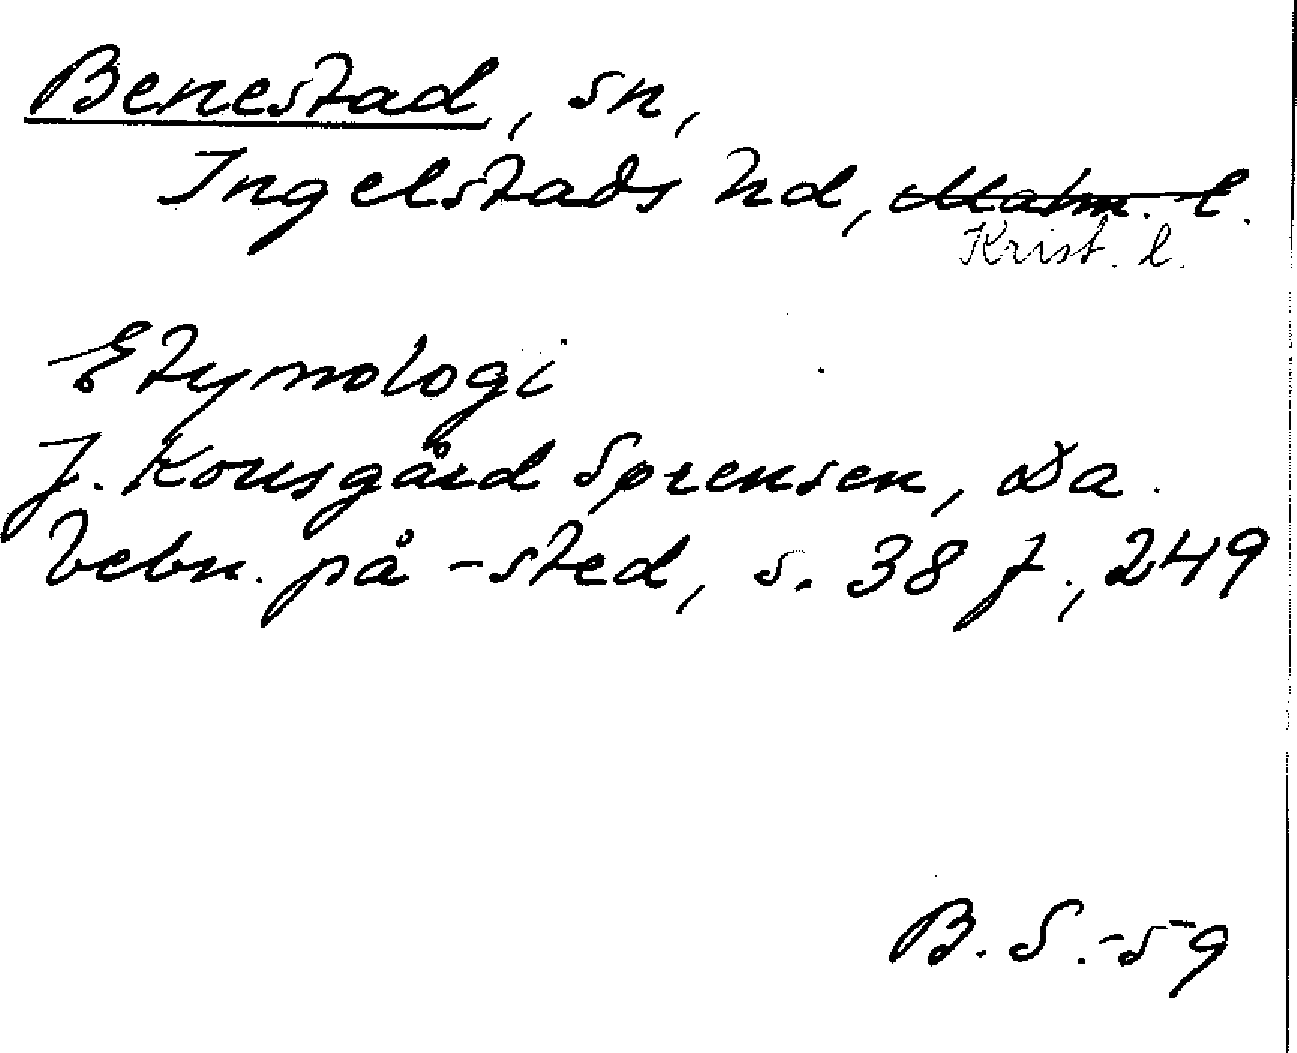 Benestad, sn,
Ingelstads hd, Malm. l.
Krist. l.
Etymologi
J. Kousgård Sørensen, Da.
bebn. på -sted, s. 38 f., 249
B. S. -59